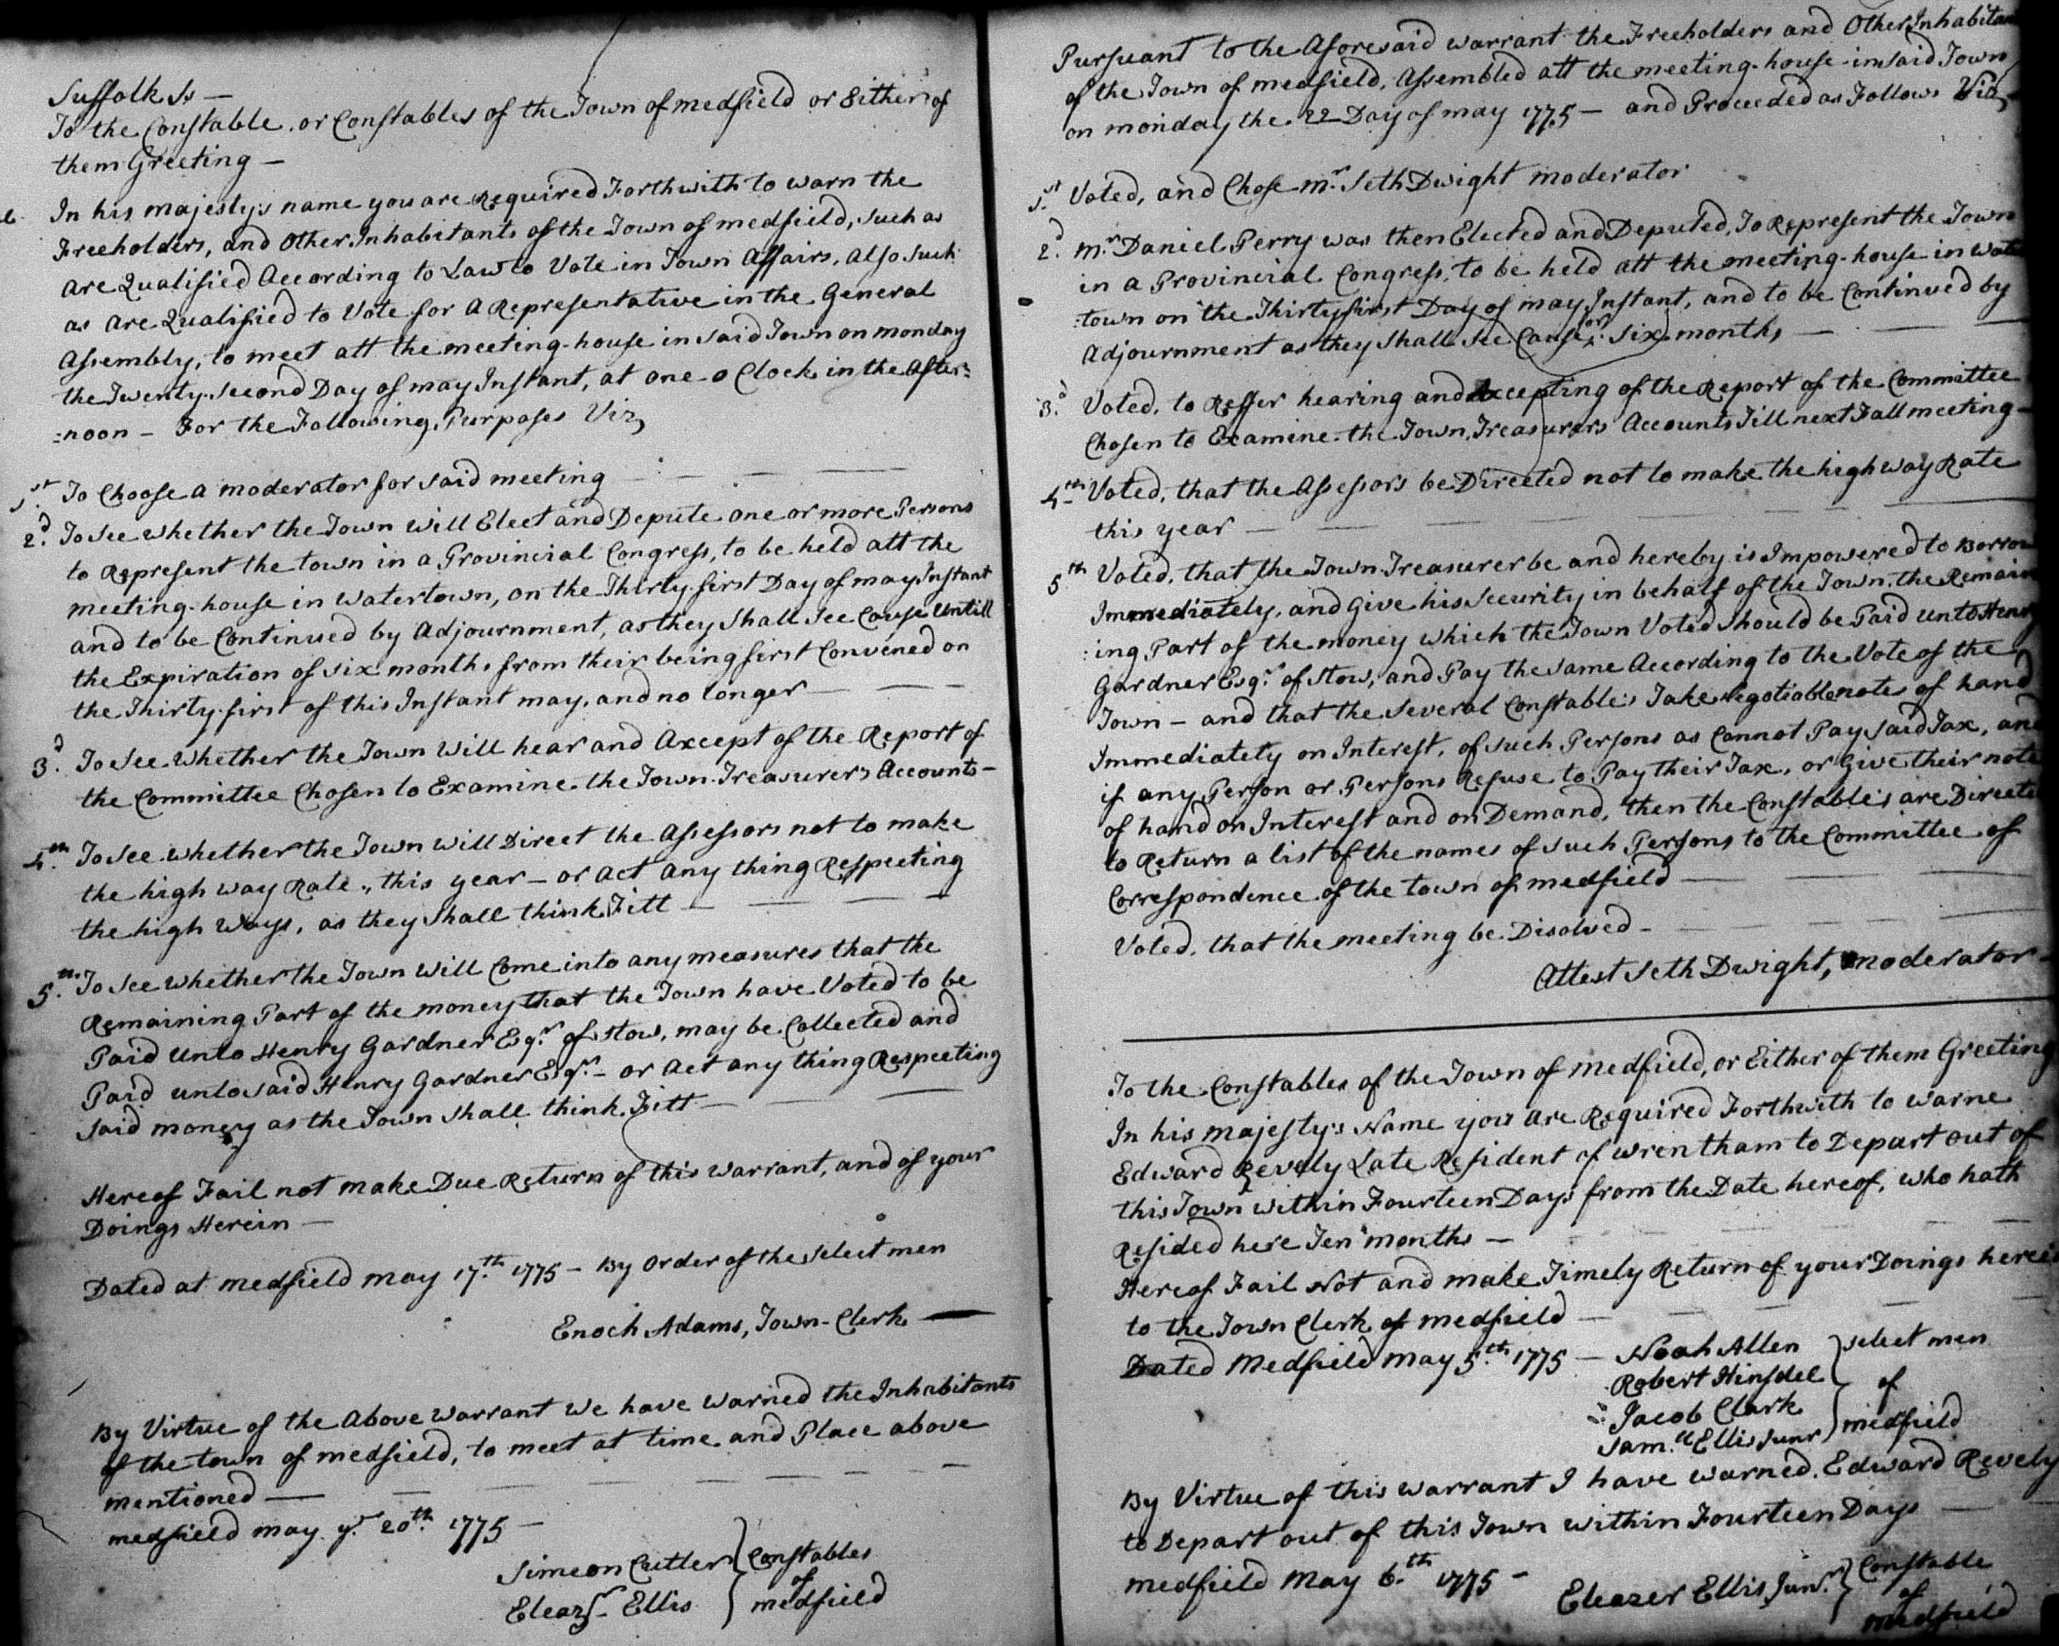 Suffolk Ss —
To the Constable or Constables of the Town of medfield or Either of
them Greeting —
In his majestys name you are Required Forthwith to warn the
Freeholders, and Other Inhabitants of the Town of medfield, such as
are Qualified According to Law to Vote in Town Affairs, Also such
as are Qualified to Vote for A Representative in the General
Assembly, to meet att the meeting-house in said Town on monday
the Twenty second Day of may Instant, at one o Clock in the After=
=noon — For the Following Purposes Viz
1st. To Choose a moderator for said meeting
2d. To see whether the Town will Elect and Depute one or more Persons
to Represent the town in a Provincial Congress, to be held att the
meeting-house in Watertown, on the Thirty first Day of may Instant
and to be Continued by Adjournment, as they shall see Cause Untill
the Expiration of six months from their being first Convened on
the Thirty first of this Instant may, and no longer —
3d. To see whether the Town will hear and Axcept of the Report of
the Committee Chosen to Examine the Town Treasurers Accounts —
4th. To see whether the Town will Direct the Assessors not to make
the high way Rate, this year — or act any thing Respecting
the high Ways, as they shall think Fitt —
5th. To see whether the Town will Come into any measures that the
Remaining Part of the money that the Town have Voted to be
Paid Unto Henry Gardner Esqr. of Stow, may be Collected and
Paid unto said Henry Gardner Esqr. — or act any thing Respecting
said money as the Town shall think Fitt —
Hereof Fail not make Due Return of this warrant, and of your
Doings Herein —
Dated at medfield may 17th. 1775 — By Order of the select men
Enoch Adams, Town-Clerk —
By Virtue of the Above warrant we have warned the Inhabitants
of the town of medfield, to meet at time and Place above
mentioned —
medfield may ye. 20th. 1775 —
Simeon Cutler } Constables
of
Eleazr. Ellis } medfield
Pursuant to the Aforesaid warrant the Freeholders and Other Inhabitan
of the Town of medfield, Assembled att the meeting-house in said Town
on monday the 22 Day of may 1775 — and Proceeded as Follows Viz
1st. Voted, and Chose mr. Seth Dwight moderator
2d. mr. Daniel Perry was then Elected and Deputed, To Represent the Town
in a Provincial Congress, to be held att the meeting-house in Wate
=town on the Thirty first Day of may Instant, and to be Continued by
Adjournment as they shall see Cause for six months —
3d. Voted, to Reffer hearing and Axcepting of the Report of the Committee
Chosen to Examine the Town Treasurers Accounts Till next Fall meeting —
4th. Voted, that the Assessors be Directed not to make the high way Rate
this year —
5th Voted, that the Town Treasurer be and hereby is Impowered to Borrow
Immediately, and Give his security in behalf of the Town, the Remain
=ing Part of the money which the Town Voted should be Paid unto Henry
Gardner Esqr. of Stow, and Pay the same According to the Vote of the
Town — and that the several Constables Take Negotiable notes of hand
Immediately on Interest, of such Persons as Cannot Pay said Tax, and
if any Person or Persons Refuse to Pay their Tax, or Give their note
of hand on Interest and on Demand, then the Constables are Directe
to Return a list of the names of such Persons to the Committee of
Correspondence of the town of medfield —
Voted, that the meeting be Disolved —
Attest Seth Dwight, moderator —
To the Constables of the Town of medfield, or Either of them Greeting
In his majestys Name you are Required Forthwith to warne
Edward Revely Late Resident of wrentham to Depart out of
this Town within Fourteen Days from the Date hereof, who hath
Resided here Ten months —
Hereof Fail Not and make Timely Return of your Doings herein
to the Town Clerk of medfield —
Dated Medfield May 5th. 1775 — Noah Allen } select men
Robert Hinsdel
of
Jacob Clark
Samll Ellis Junr } medfield
By Virtue of this warrant I have warned Edward Revely
to Depart out of this Town within Fourteen Days —
medfield May 6th. 1775 —
Eleazer Ellis Junr. } Constable
of
medfield